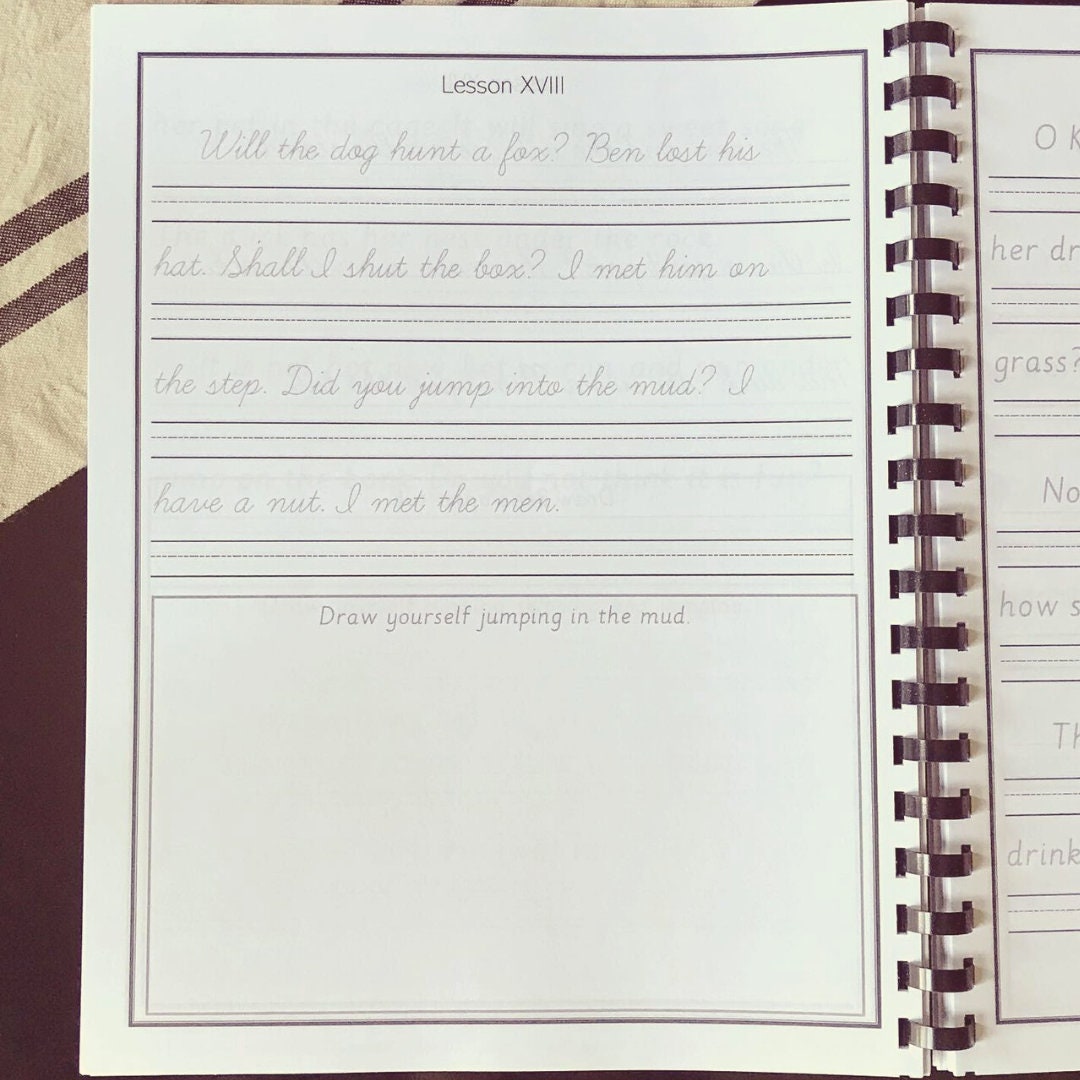 Lesson XVIII
Will the dog hunt a fox? Ben lost his
hat. Shall I shut the box? I met him on
the step. Did you jump into the mud? I
have a nut. I met the men.
Draw yourself jumping in the mud.
O
her
grass?
how
drink